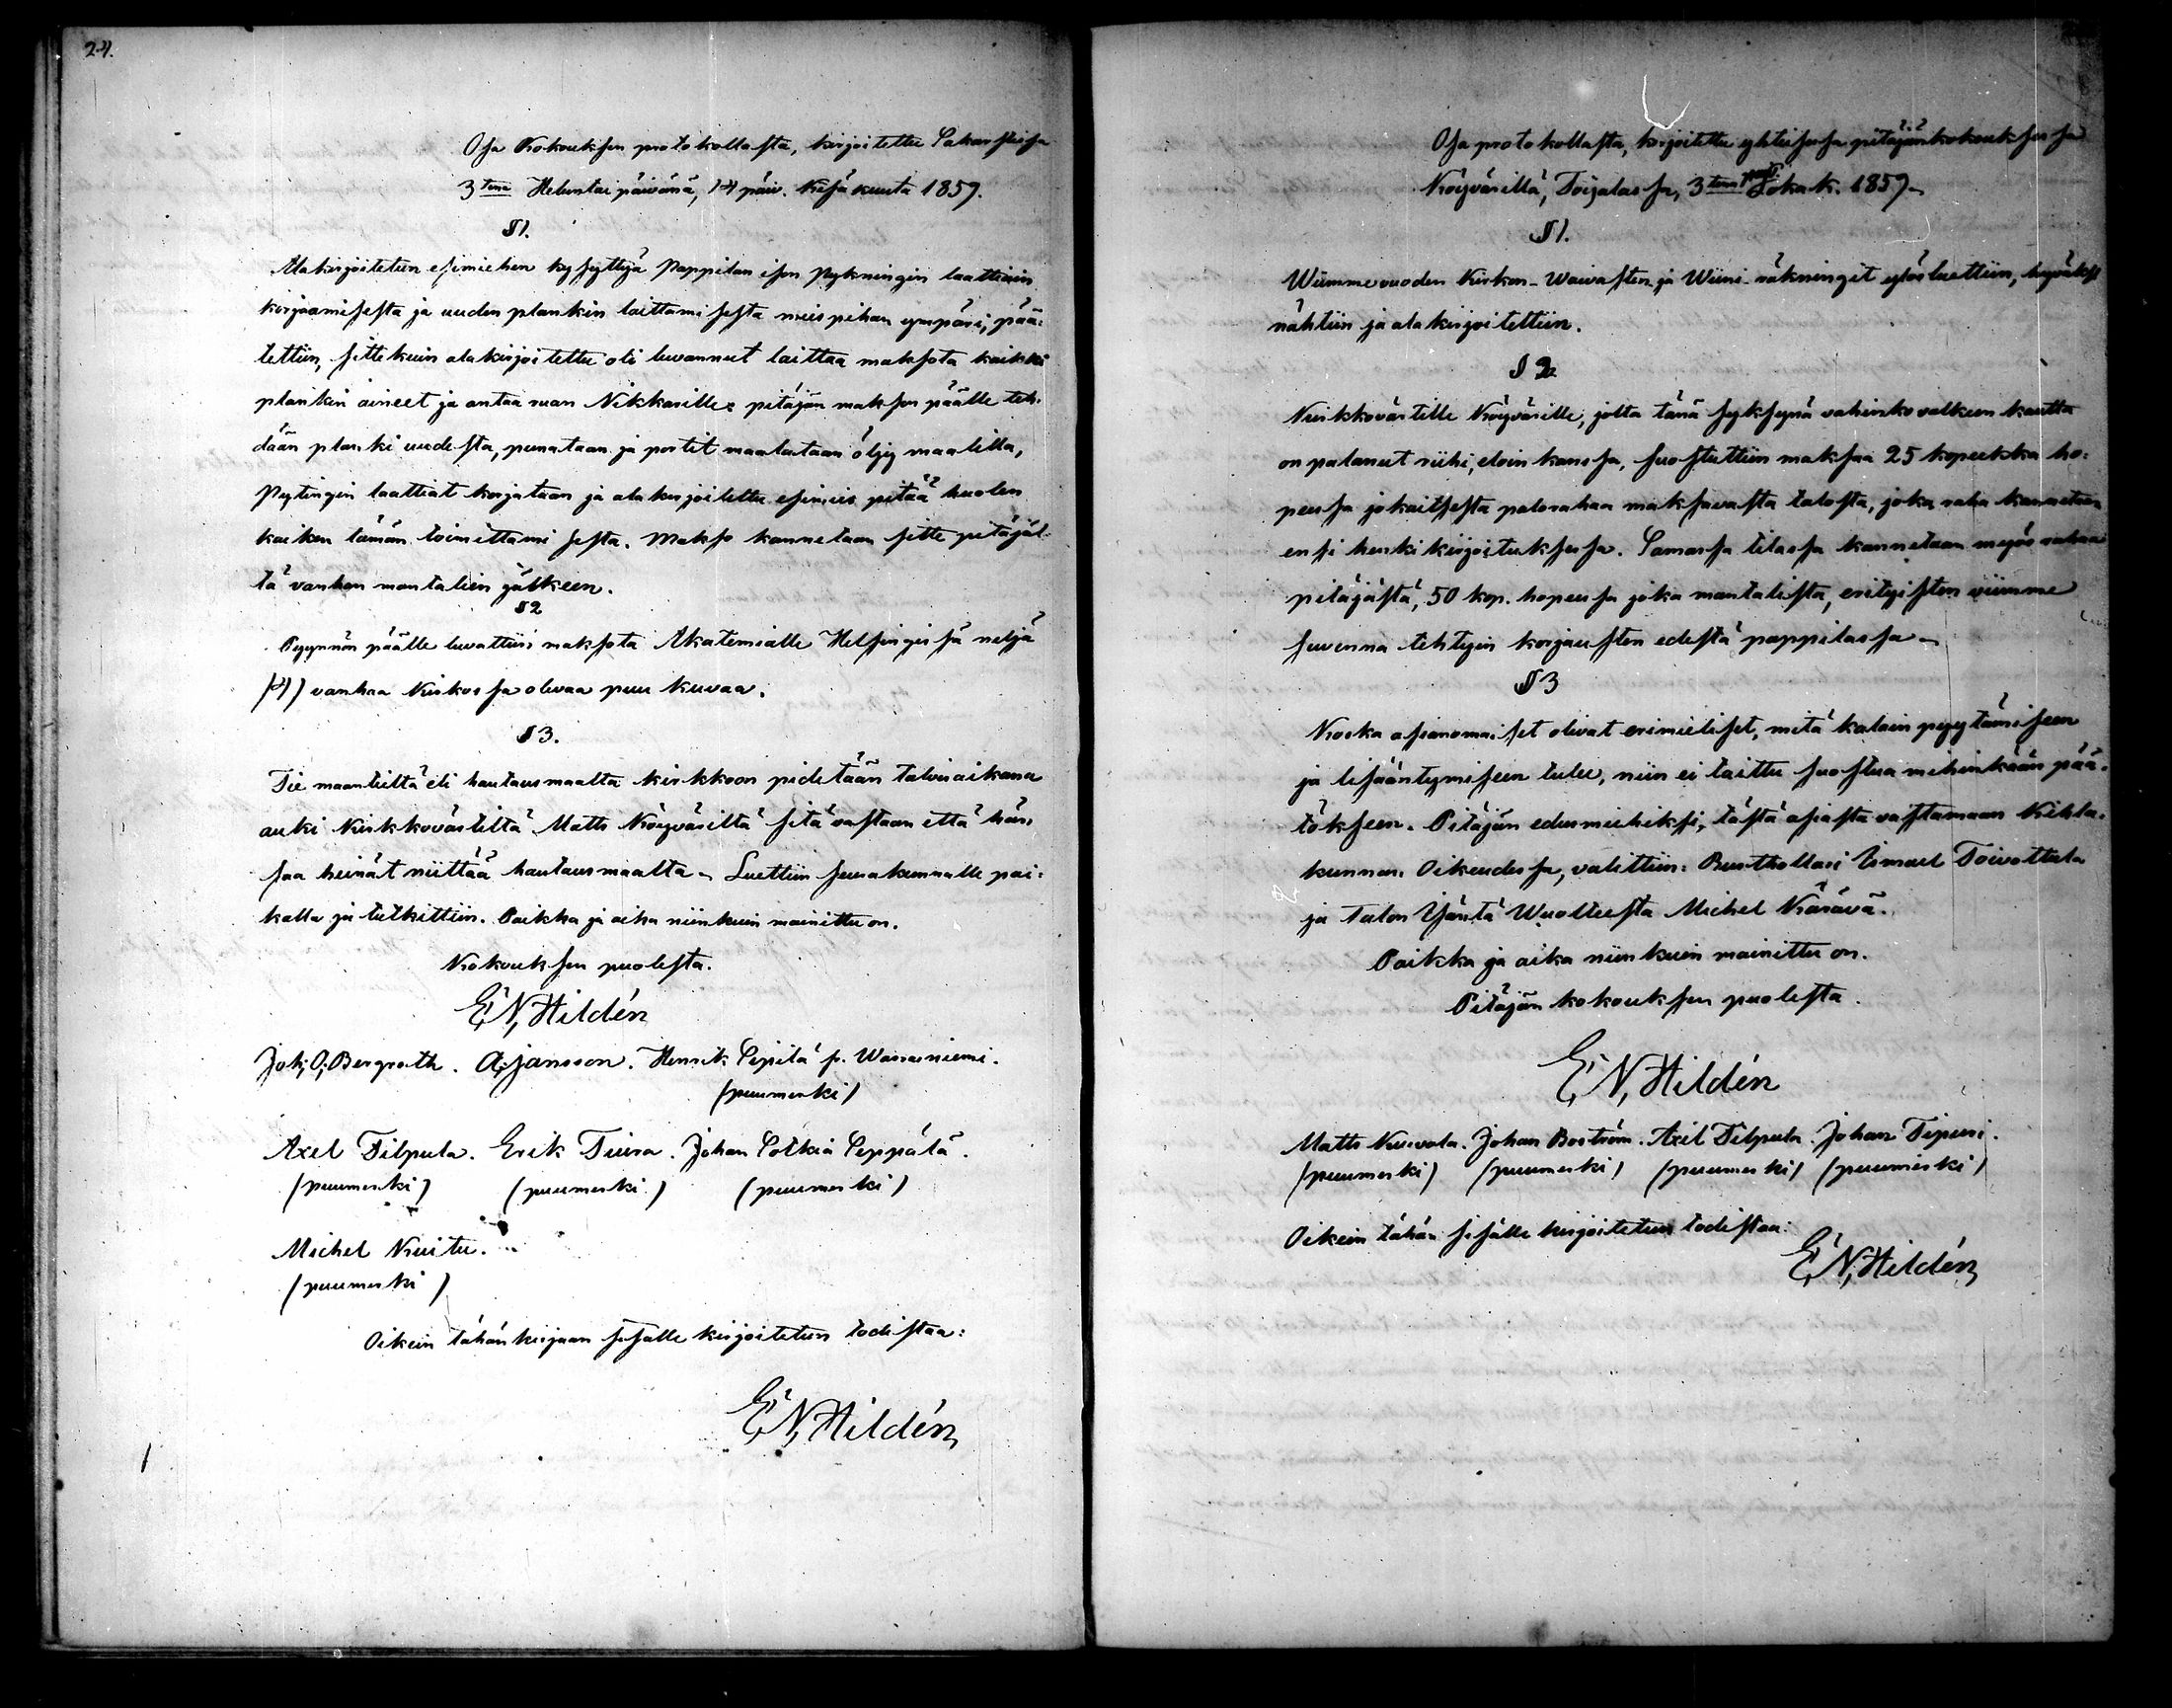 24.
Osa Kokouksen protokollasta, kirjoitettu Sakaristissa
3tena Heluntai päivänä, 14 päiv. Kesäkuuta 1859.
§ 1.
Alakirjoitetun esimiehen kysyttyä Pappilan ison Pykningin laattiain
korjaamisesta ja uuden plankin laittamisesta miespihan ympäri, pää-
tettiin, sitte kuin alakirjoitettu oli luvannut laittaa maksota kaikki
plankin aineet ja antaa ruan Nikkarille: pitäjän makson päälle teh-
dään planki uudesta, punataan ja portit maalataan öljy maalilla,
Pytingin laattiat korjataan ja alakirjoitettu esimies pitää huolen
kaiken tämän toimittamisesta. Makso kannetaan sitte pitäjäl-
tä vanhan mantalien jälkeen.
§ 2
Pyynnön päälle luvattiin maksota Akatemialle Helsingissä neljä
(4) vanhaa Kirkossa olevaa puu kuvaa.
§ 3.
Tie maantieltä eli hautausmaalta kirkkoon pidetään talviaikana
auki Kirkkovärtiltä Matts Köyväriltä sitä vastaan että hän
saa heinät niittää hautausmaalta. Luettiin seurakunnalle pai-
kalla ja tutkittiin. Paikka ja aika niinkuin mainittu on.
Kokouksen puolesta.
E. N. Hildén
Joh. O. Bergroth. A. Jansson. Henrik Sepilä f. Wasraniemi.
(puumerki)
Axel Tilpula. Erik Tiura. Johan Sotkia Seppälä.
(puumerki) (puumerki) (puumerki)
Michel Kuitu.
(puumerki)
Oikein tähän kirjaan sisälle kirjoitetun todistaa:
E. N. Hildén
Osa protokollasta, kirjoitettu yhteisessä pitäjänkokouksessa
Köyvärillä, Toijalassa, 3tena päiv. Lokak. 1859.
§ 1.
Wiimmevuoden Kirkon- Waivasten ja Wiini- räkningit ylösluettiin, hyväksi
nähtiin ja alakirjoitettiin.
§ 2
Kirkkovärtille Köyvärille, jolta tänä syksynä vahinkovalkean kautta
on palanut riihi, eloin kanssa, suostuttiin maksaa 25 kopeekka ho-
peessa jokaitsesta palorahaa maksavasta talosta, joka raha kannetaan
ensi henkikirjoituksessa. Samassa tilassa kannetaan myös rahaa
pitäjästä, 50 kop. hopeessa joka mantalista, erityisten viimme
suvenna tehtyin korjausten edestä pappilassa.
§ 3
Koska asianomaiset olivat erimieliset, mitä kalain pyytämiseen
ja lisääntymiseen tulee, niin ei taittu suostua mihinkään pää-
tökseen. Pitäjän edusmiehiksi, tästä asiasta vastamaan Kihla-
kunnan Oikeudessa, valittiin: Rusthollari Ismael Toivottula
ja Talon Isäntä Wuolteesta Michel Kärävä.
Paikka ja aika niinkuin mainittu on.
Pitäjän kokouksen puolesta.
E. N. Hildén
Matts Kuivola. Johan Boström. Axel Tilpula. Johan Tipuri.
(puumerki) (puumerki) (puumerki) (puumerki)
Oikein tähän sisälle kirjoitetun todistaa:
E. N. Hildén